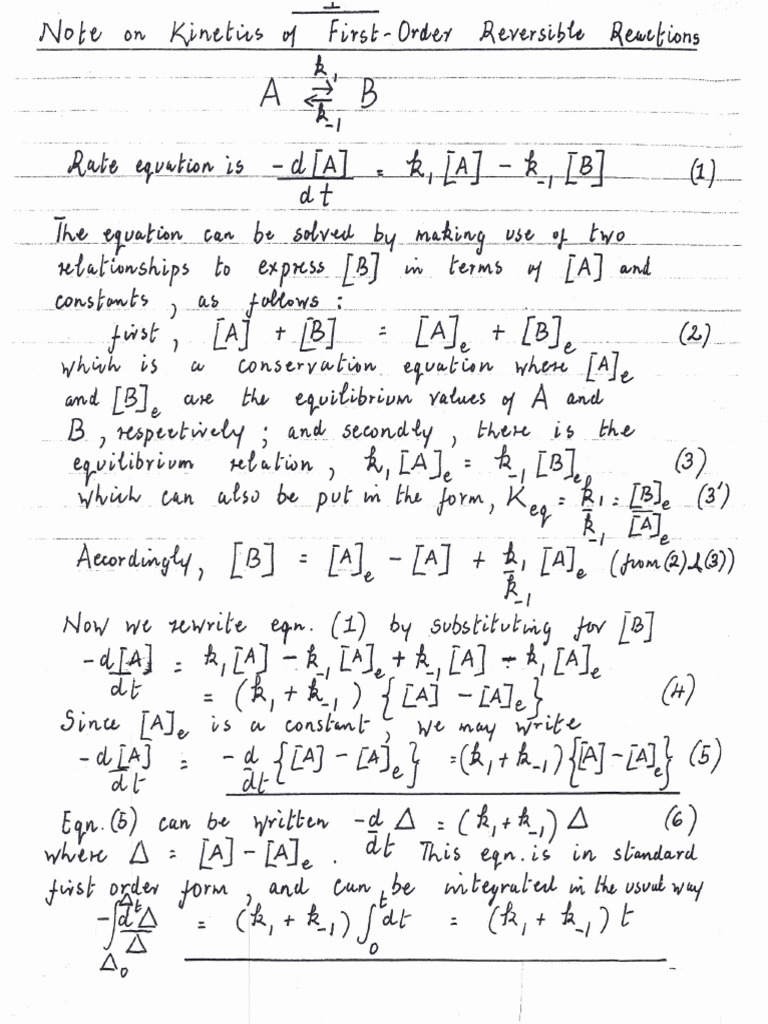 1
Note on Kinetics of First-Order Reversible Reactions
k₁
A ⇄ B
k₋₁
Rate equation is -d[A]/dt = k₁[A] - k₋₁[B] (1)
The equation can be solved by making use of two
relationships to express [B] in terms of [A] and
constants, as follows:
first, [A] + [B] = [A]ₑ + [B]ₑ (2)
which is a conservation equation where [A]ₑ
and [B]ₑ are the equilibrium values of A and
B, respectively; and secondly, there is the
equilibrium relation, k₁[A]ₑ = k₋₁[B]ₑ, (3)
which can also be put in the form, K_eq = k₁/k₋₁ = [B]ₑ/[A]ₑ (3')
Accordingly, [B] = [A]ₑ - [A] + k₁/k₋₁ [A]ₑ (from (2) & (3))
Now we rewrite eqn. (1) by substituting for [B]
-d[A]/dt = k₁[A] - k₋₁[A]ₑ + k₋₁[A] - k₁[A]ₑ
= (k₁ + k₋₁) {[A] - [A]ₑ} (4)
Since [A]ₑ is a constant, we may write
-d[A]/dt = -d/dt {[A] - [A]ₑ} = (k₁ + k₋₁) {[A] - [A]ₑ} (5)
Eqn. (5) can be written -d/dt Δ = (k₁ + k₋₁) Δ (6)
where Δ = [A] - [A]ₑ. This eqn. is in standard
first order form, and can be integrated in the usual way
-∫_Δ₀^Δt dΔ/Δ = (k₁ + k₋₁) ∫₀^t dt = (k₁ + k₋₁) t